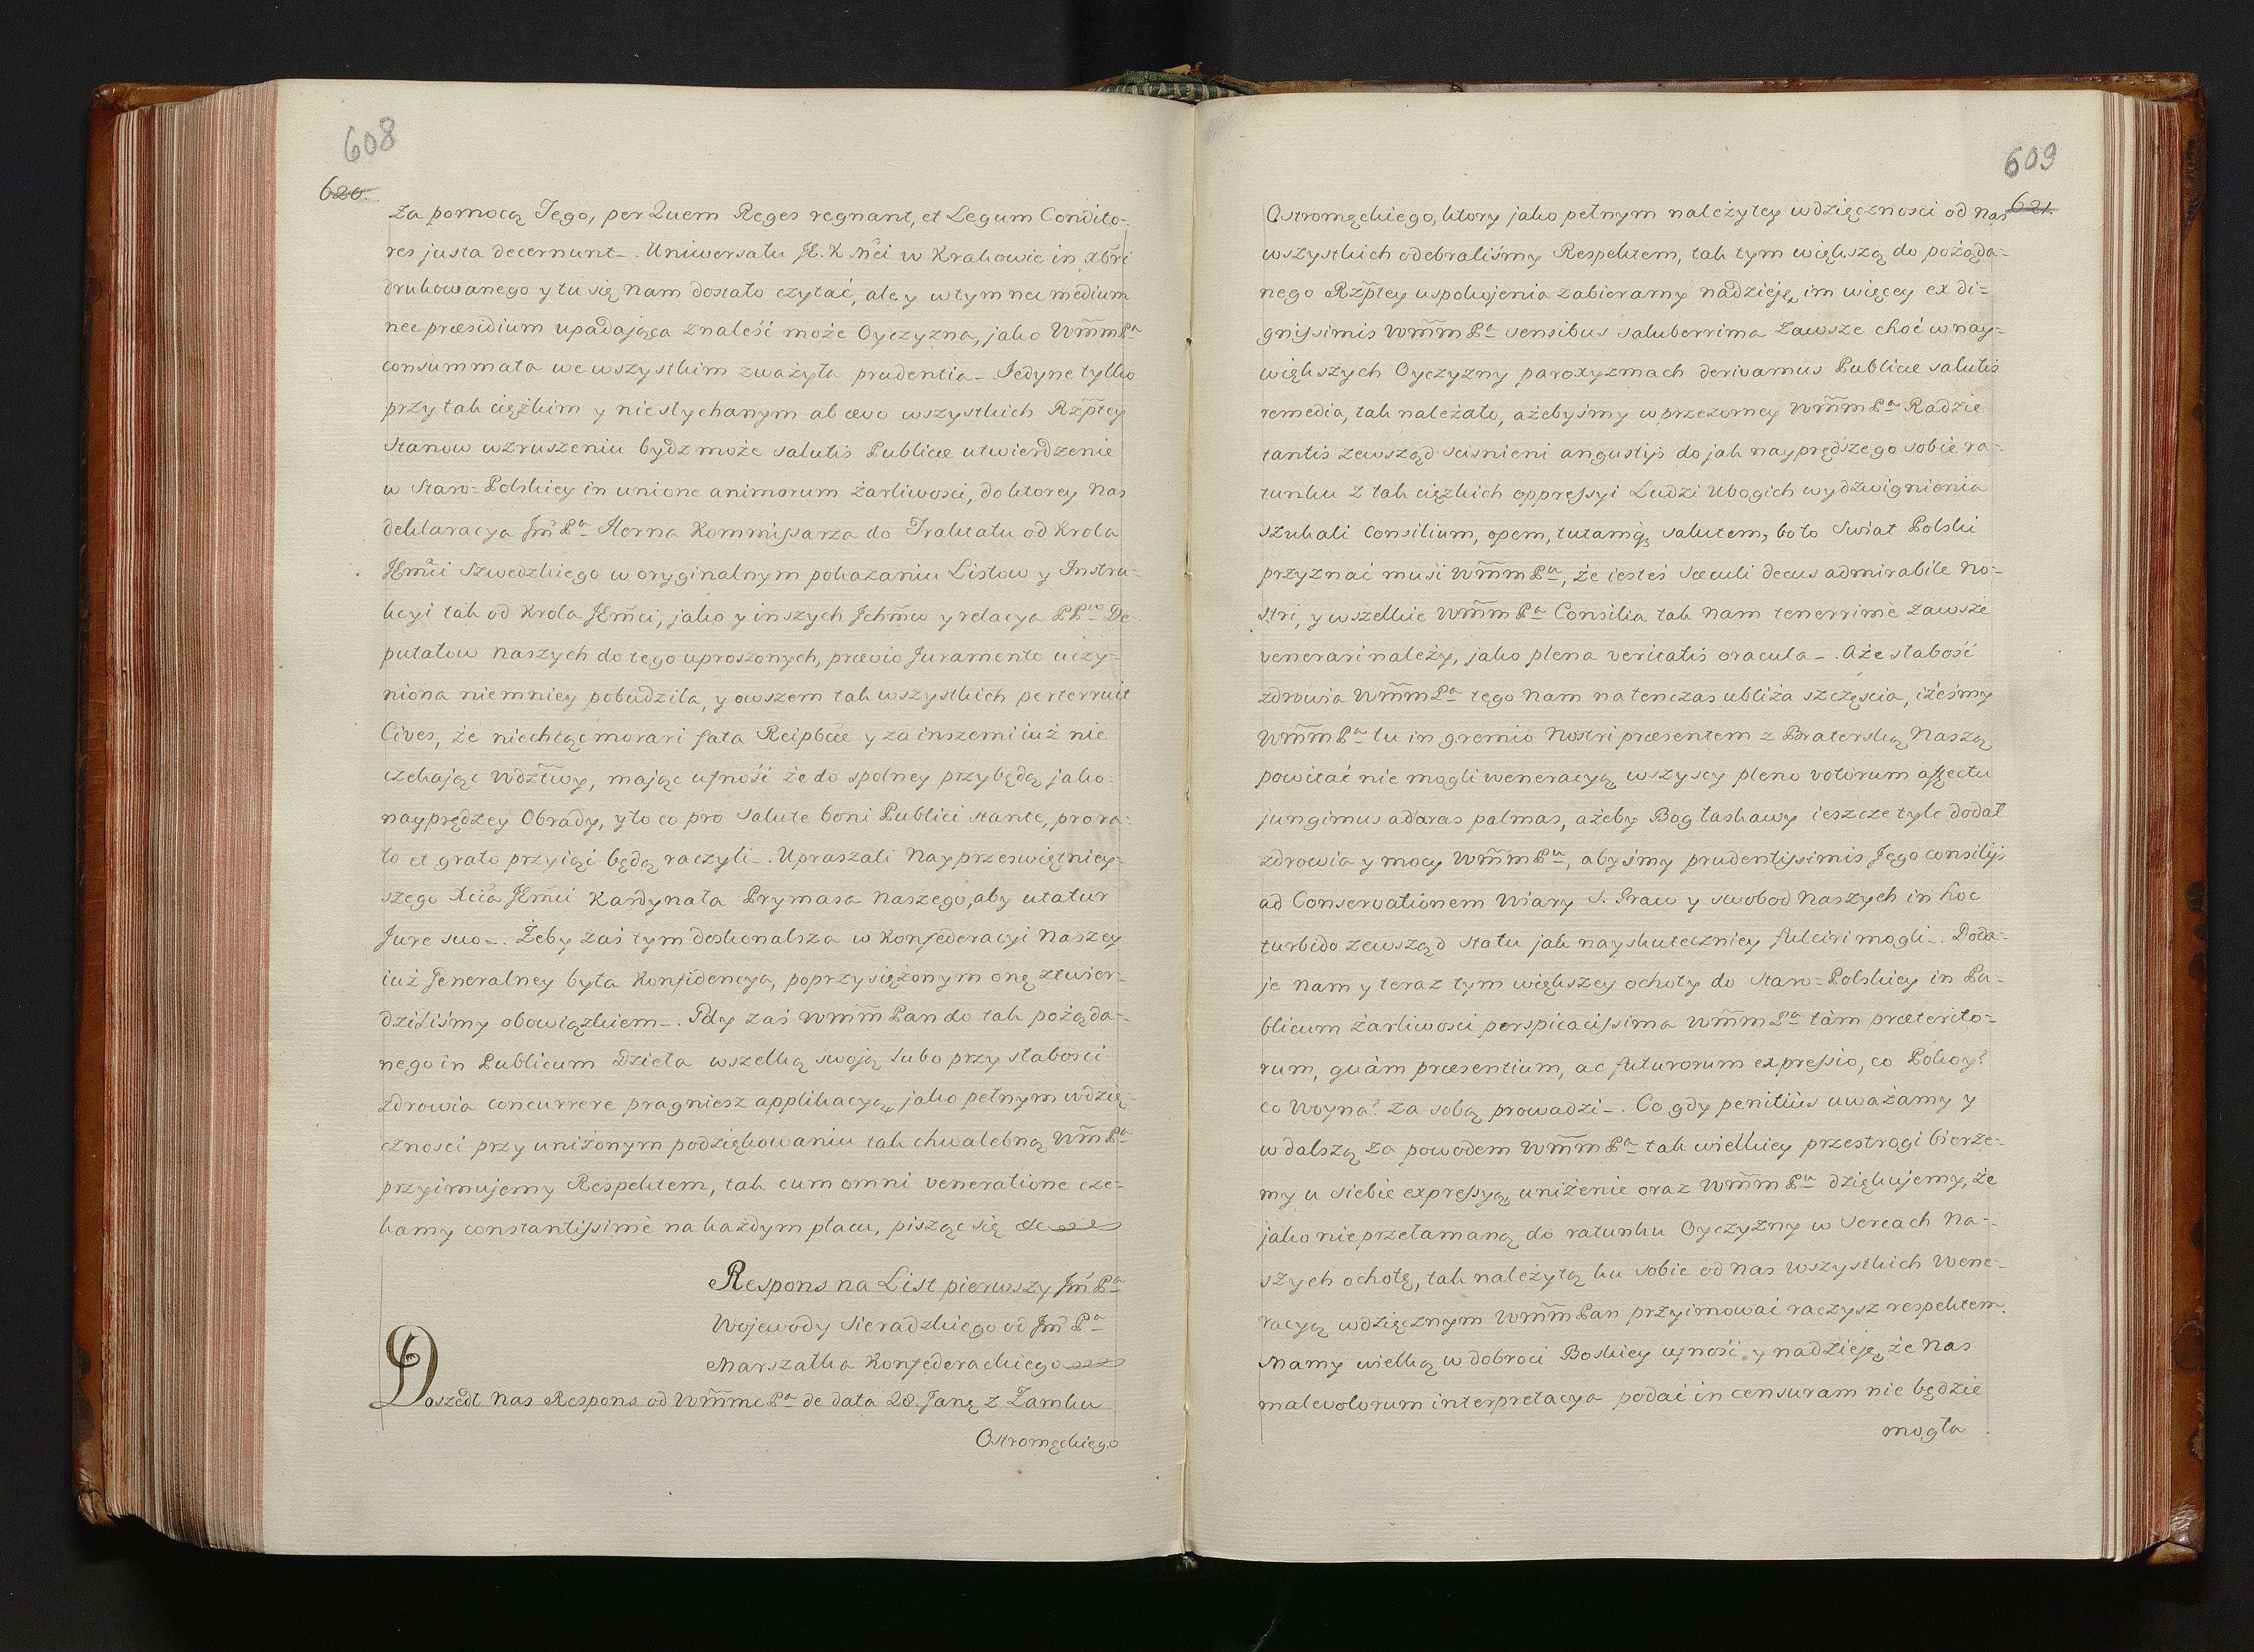 608
620.
za pomocą Jego, per Quem Reges regnant, et Legum Condito-
res justa decernunt_. Uniwersału JE. K Mći w Krakowie in Xbri
drukowanego y tu się nam dostało czytać, ale y w tym nec medium
nec præsidium upadająca znaleść może Oyczyzna, jako WMM Pa
consummata we wszystkim zważyła prudentia_ Jedyne tylko
przy tak ciężkim y niesłychanym ab ævo wszystkich Rzptey
Stanow wzruszeniu bydz może salutis Publicæ utwierdzenie
w Staro=Polskiey in unione animorum żarliwosci, do ktorey nas
deklaracya Jm Pa Horna Kommissarza do Traktatu od Krola
JEmći Szwedzkiego w oryginalnym pokazaniu Listow y Instru-
kcyi tak od Krola JEmći, jako y inszych Jchmćw y relacya PPow De-
putatow naszych do tego uproszonych, prævio Juramento uczy-
niona niemniey pobudziła, y owszem tak wszystkich perterruit
Cives, że niechcąc morari fata Reipbcæ y za inszemi iuż nie
czekając Wdztwy, mając ufność że do spolney przybędą jako-
nayprędzey Obrady, y to co pro salute boni Publici stante, pro ra-
to et grato przyiąć będą raczyli_. Upraszali Nayprzeswiętniey-
szego Xcia JEmći Kardynała Prymasa Naszego, aby utatur
Jure suo_. Żeby zaś tym doskonalsza w Konfederacyi naszey
iuż Jeneralney była Konfidencya, poprzysiężonym onę ztwier-
dziliśmy obowiązkiem_. Gdy zaś WMM Pan do tak pożąda-
nego in Publicum Dzieła wszelką swoją lubo przy słabosci
zdrowia concurrere pragniesz applikacyą, jako pełnym wdzię-
czności przy uniżonym podziękowaniu tak chwalebną WM Pa
przyimujemy Respektem, tak cum omni veneratione cze-
kamy constantissimè na każdym placu, pisząc się etc
Respons na List pierwszy Jm Pa
Wojewody Sieradzkiego od Jm Pa
Marszałka Konfederackiego
Doszedł nas Respons od WMM Pa de data 28. Jan z Zamku
Ostromęckiego
609
621.
Ostromęckiego, ktory jako pełnym należytey wdzięcznosci od nas
wszystkich odebraliśmy Respektem, tak tym większą do pożąda-
nego Rzptey uspokojenia zabieramy nadzieję, im więcey ex di=
gnissimis WMM Pa sensibus saluberrima zawsze choć w nay-
większych Oyczyzny paroxyzmach derivamus Publicæ salutis
remedia, tak należało, ażebyśmy w przezorney WMM Pa Radzie
tantis zewsząd scisnieni angustijs do jak nayprędszego sobie ra-
tunku z tak cięzkich oppressyi Ludzi Ubogich wydzwignienia
szukali Consilium, opem, tutamq salutem, bo to Swiat Polski
przyznać musi WMM Pa, że iesteś Sæculi decus admirabile no-
stri, y wszelkie WMM Pa Consilia tak nam tenerrimè zawsze
venerari należy, jako plena veritatis oracula_. Aże słabość
zdrowia WMM Pa tego nam natenczas ubliża szczęścia, iżeśmy
WMM Pa tu in gremio Nostri præsentem z Braterską Naszą
powitać nie mogli weneracyą, wszyscy pleno votorum affectu
jungimus ad aras palmas, ażeby Bog łaskawy ieszcze tyle dodał
zdrowia y mocy WMM Pa, abyśmy prudentissimis Jego consilijs
ad Conservationem Wiary S. Praw y swobod Naszych in hoc
turbido zewsząd statu jak nayskuteczniey fulciri mogli_. Doda-
je nam y teraz tym większey ochoty do Staro=Polskiey in Pu-
blicum żarliwosci perspicacissima WMM Pa tàm præterito-
rum, quàm præsentium, ac futurorum expressio, co Pokoy?
co Woyna? za sobą prowadzi_. Co gdy penitiùs uważamy y
w dalszą za powodem WMM Pa tak wielkiey przestrogi bierze-
my u siebie expressyą, uniżenie oraz WMM Pa dziękujemy, że
jako nieprzełamaną do ratunku Oyczyzny w Sercach Na-
szych ochotę, tak należytą ku sobie od nas wszystkich wene-
racyą wdzięcznym WMM Pan przyimować raczysz respektem.
Mamy wielką w dobroci Boskiey ufność y nadzieję, że nas
malevolorum interpretacya podać in censuram nie będzie
mogła